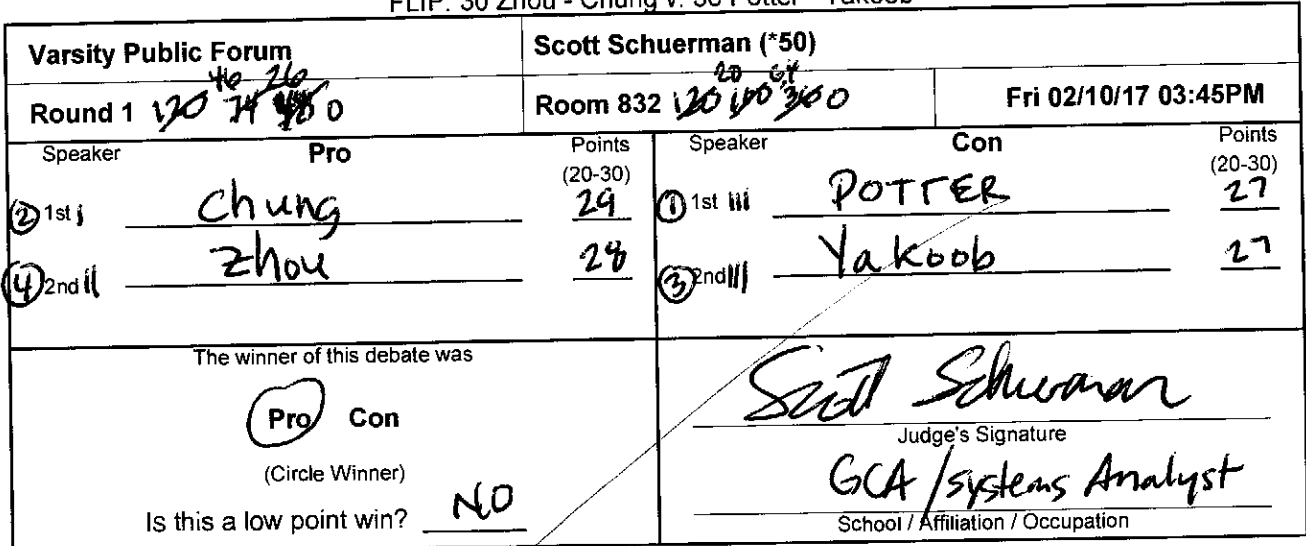 FLIP: 30 Zhou - Chung v. 36 Potter - Yakoob
Varsity Public Forum
Scott Schuerman (*50)
46 26
20 64
Round 1 120 74 0
Room 832 120 100 360 0
Fri 02/10/17 03:45PM
Speaker Pro Points (20-30)
② 1st j Chung 29
④ 2nd ij Zhou 28
Speaker Con Points (20-30)
① 1st iii POTTER 27
③ 2nd ||| Yakoob 27
The winner of this debate was
Pro Con
(Circle Winner)
Is this a low point win? NO
Scott Schuerman
Judge's Signature
GCA / systems Analyst
School / Affiliation / Occupation